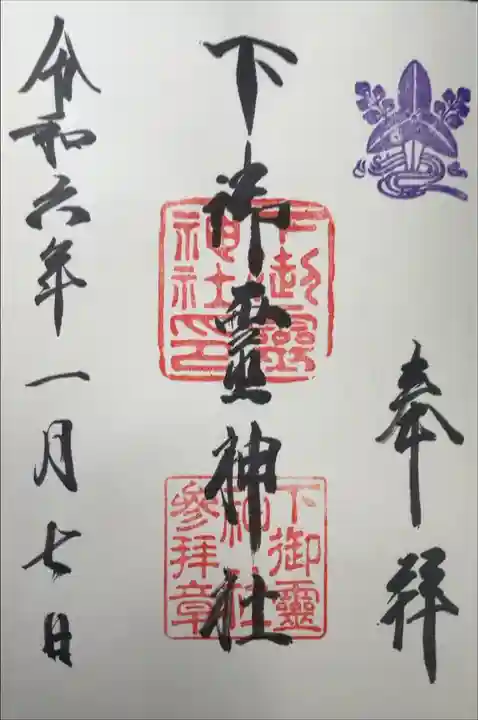 奉拝
下御靈神社
下御靈神社印
下御靈神社参拝章
令和六年一月七日